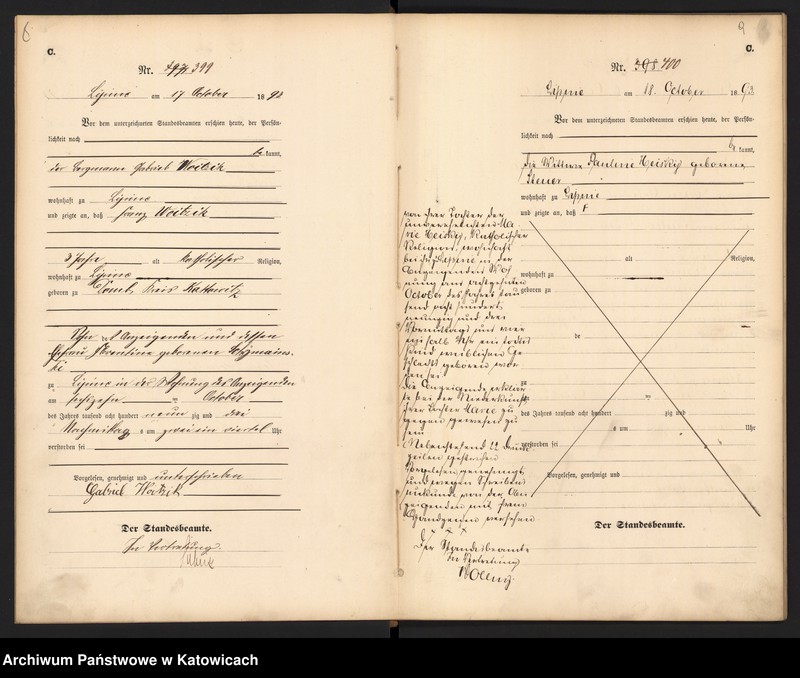 6
C.
Nr. 399
Lipine am 17 October 1893
Vor dem unterzeichneten Standesbeamten erschien heute, der Persön-
lichkeit nach
be kannt,
der Bergmann Gabriel Woitzik
wohnhaft zu Lipine
und zeigte an, daß Franz Woitzik
3 Jahre alt katholischer Religion,
wohnhaft zu Lipine
geboren zu Domb Kreis Kattowitz
Sohn des Anzeigenden und dessen
Ehefrau Florentine geborenen
zu Lipine in der Wohnung des Anzeigenden
am sechzehn ten October
des Jahres tausend acht hundert neun zig und drei
Nachmittag s um zwei ein viertel Uhr
verstorben sei
Vorgelesen, genehmigt und unterschrieben
Gabriel Woitzik
Der Standesbeamte.
In Vertretung.
9
C.
Nr. 398 400
Lipine am 18. October 1893
Vor dem unterzeichneten Standesbeamten erschien heute, der Persön-
lichkeit nach
be kannt,
die Wittwe Pauline Heisky geborene
wohnhaft zu Lipine
und zeigte an, daß
alt Religion,
wohnhaft zu
geboren zu
de
zu
am ten
des Jahres tausend acht hundert zig und
s um Uhr
verstorben sei
Vorgelesen, genehmigt und
Der Standesbeamte.
von ihrer Tochter der
unverehelichten Ma-
rie Heisky, katholischer
Religion, wohnhaft
bei ihr zu Lipine in der
Anzeigenden Woh
nung am achtzehnten
October des Jahres tau
send acht hundert
neunzig und drei
Vormittags um vier
ein halb Uhr ein todtes
Kind weiblichen Ge
schlechts geboren wor
den sei
Die Anzeigende erklär
te bei der Niederkunft
ihrer Tochter Marie zu
gegen gewesen zu
sein
Nebenstehend 22 Druck
zeilen gestrichen
Vorgelesen, genehmigt
und wegen Schreibens
unkunde von der An
zeigenden mit ihrem
Handzeichen versehen
x x x
Der Standesbeamte
In Vertretung
Archiwum Państwowe w Katowicach